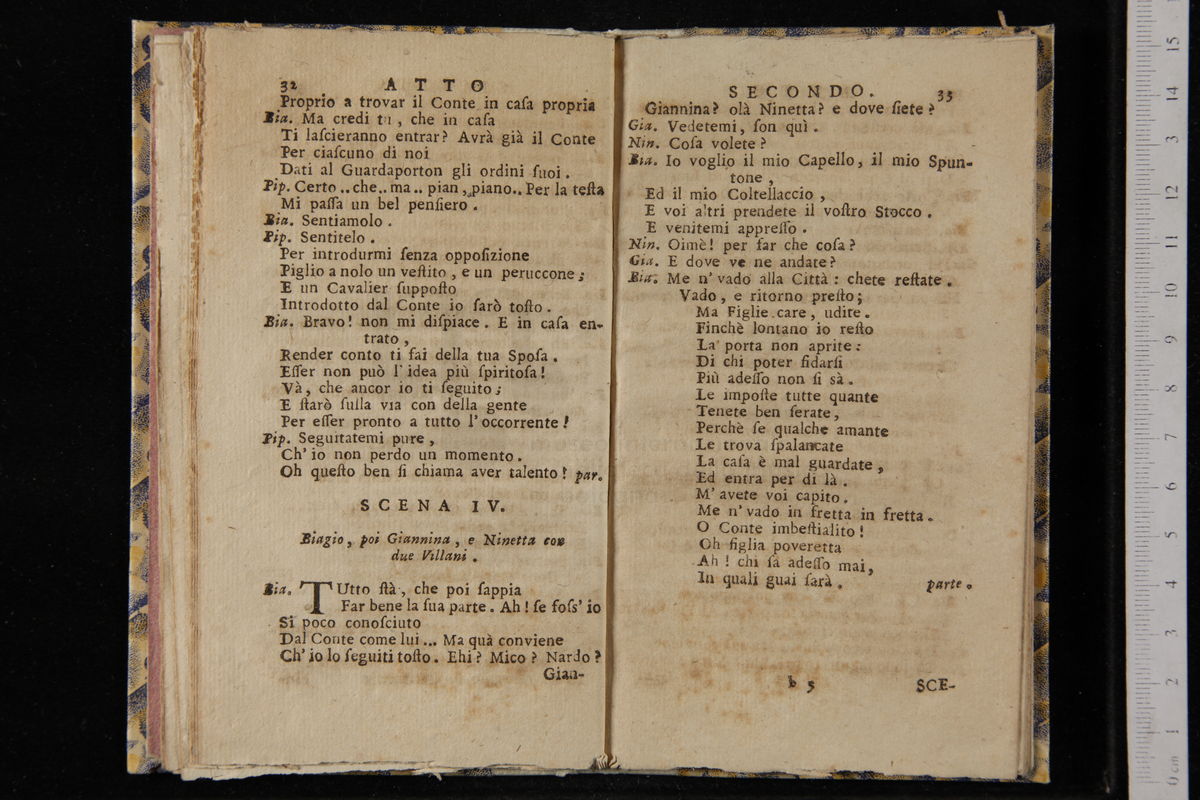 32 ATTO
Proprio a trovar il Conte in caſa propria
Bia. Ma credi tu, che in caſa
Ti laſcieranno entrar? Avrà già il Conte
Per ciaſcuno di noi
Dati al Guardaporton gli ordini ſuoi.
Pip. Certo .. che.. ma .. pian, piano.. Per la teſta
Mi paſſa un bel penſiero.
Bia. Sentiamolo.
Pip. Sentitelo.
Per introdurmi ſenza oppoſizione
Piglio a nolo un veſtito, e un peruccone;
E un Cavalier ſuppoſto
Introdotto dal Conte io ſarò toſto.
Bia. Bravo! non mi diſpiace. E in caſa en-
trato,
Render conto ti fai della tua Spoſa.
Eſſer non può l'idea più ſpiritoſa!
Và, che ancor io ti ſeguito;
E ſtarò ſulla via con della gente
Per eſſer pronto a tutto l'occorrente!
Pip. Seguitatemi pure,
Ch'io non perdo un momento.
Oh queſto ben ſi chiama aver talento! par.
SCENA IV.
Biagio, poi Giannina, e Ninetta con
due Villani.
Bia. TUtto ſtà, che poi ſappia
Far bene la ſua parte. Ah! ſe foſs'io
Si poco conoſciuto
Dal Conte come lui... Ma quà conviene
Ch'io lo ſeguiti toſto. Ehi? Mico? Nardo?
Gian-
SECONDO. 33
Giannina? olà Ninetta? e dove ſiete?
Gia. Vedetemi, ſon quì.
Nin. Coſa volete?
Bia. Io voglio il mio Capello, il mio Spun-
tone,
Ed il mio Coltellaccio,
E voi altri prendete il voſtro Stocco.
E venitemi appreſſo.
Nin. Oimè! per far che coſa?
Gia. E dove ve ne andate?
Bia. Me n'vado alla Città: chete reſtate.
Vado, e ritorno preſto;
Ma Figlie care, udite.
Finchè lontano io reſto
La porta non aprite:
Di chi poter fidarſi
Più adeſſo non ſi sà.
Le impoſte tutte quante
Tenete ben ſerate,
Perchè ſe qualche amante
Le trova ſpalancate
La caſa è mal guardate,
Ed entra per di là.
M'avete voi capito.
Me n'vado in fretta in fretta.
O Conte imbeſtialito!
Oh figlia poveretta
Ah! chi ſà adeſſo mai,
In quali guai ſarà. parte.
b 5 SCE-
15
14
13
12
11
10
9
8
7
6
5
4
3
2
1
0 cm